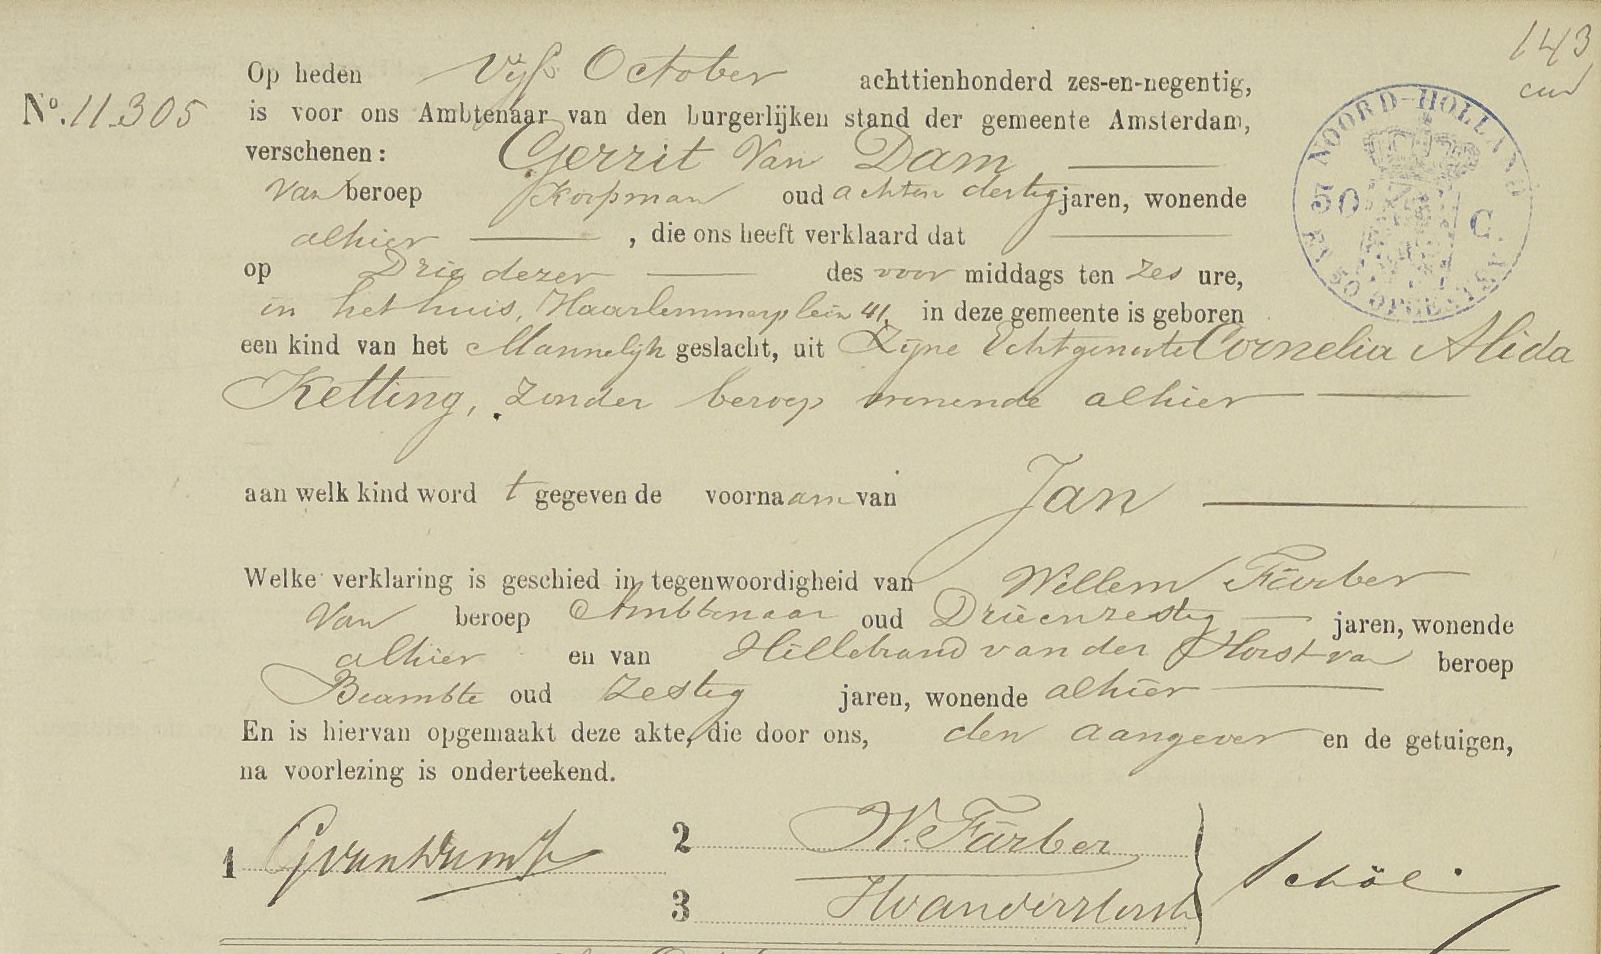 143
Op heden Vijf October achttienhonderd zes-en-negentig,
No. 11.305 is voor ons Ambtenaar van den burgerlijken stand der gemeente Amsterdam,
verschenen: Gerrit van Dam
van beroep Koopman oud achten dertig jaren, wonende
alhier, die ons heeft verklaard dat
op Drie dezer des voor middags ten zes ure,
in het huis, Haarlemmerplein 41, in deze gemeente is geboren
een kind van het Mannelijk geslacht, uit Zijne Echtgenoote Cornelia Alida
Ketting, zonder beroep wonende alhier
aan welk kind wordt gegeven de voornaam van Jan
Welke verklaring is geschied in tegenwoordigheid van Willem Färber
van beroep Ambtenaar oud Drieenzestig jaren, wonende
alhier en van Hillebrand van der Horst van beroep
Beambte oud zestig jaren, wonende alhier
En is hiervan opgemaakt deze akte, die door ons, den aangever en de getuigen,
na voorlezing is onderteekend.
1 GvanDam 2 W. Färber
3 HvanderHorst
NOORD-HOLLAND
50 C.